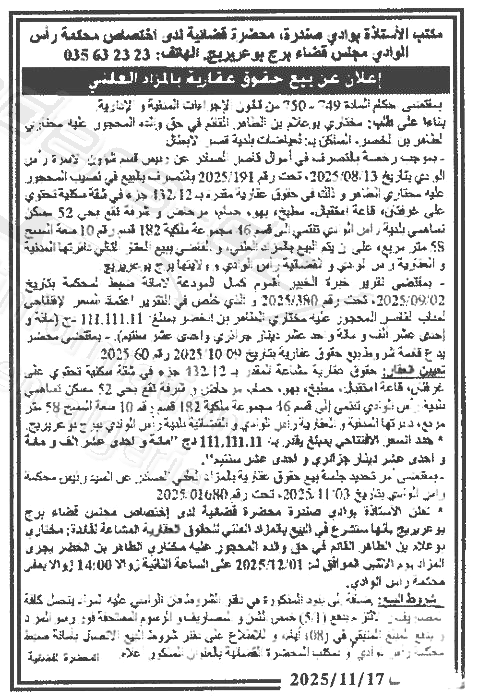 مكتب الأستاذة بوادي صندرة، محضرة قضائية لدى اختصاص محكمة رأس
الوادي مجلس قضاء برج بوعريريج. الهاتف: 23 23 63 035
إعلان عن بيع حقوق عقارية بالمزاد العلني
بمقتضى أحكام المادة 749 - 750 من قانون الإجراءات المدنية و الإدارية.
بناءا على طلب: مختاري بوعلام بن الطاهر القائم في حق والده المحجور عليه مختاري
الطاهر بن لخضر، الساكن بـ: بلدية قصر الأبطال
- بموجب رخصة بالتصرف في أموال قاصر الصادر عن رئيس قسم شؤون الأسرة رأس
الوادي بتاريخ 2025/08/13 تحت رقم 2025/191 بالتصرف بالبيع في نصيب المحجور
عليه مختاري الطاهر و ذلك في حقوق عقارية مقدرة بـ 432.12 جزء في شقة سكنية تحتوي
على غرفتان، قاعة استقبال، مطبخ، بهو، حمام، مرحاض و شرفة تقع بحي 52 مسكن
تساهمي بلدية رأس الوادي تنتمي إلى قسم 46 مجموعة ملكية 182 قسم رقم 10 سعة المسح
58 متر مربع، على أن يتم البيع بالمزاد العلني، و القاضي ببيع العقار الكائن دائرتها المدنية
و العقارية رأس الوادي و القضائية رأس الوادي و ولايتها برج بوعريريج
- بمقتضى تقرير خبرة الخبير أقسوم كمال المودعة لأمانة ضبط المحكمة بتاريخ
2025/09/02، تحت رقم 2025/380 و الذي خلص في التقرير اعتماد السعر الإفتتاحي
لمناب القاصر المحجور عليه مختاري الطاهر بن لخضر بمبلغ 111.111.11 دج (مائة و
إحدى عشر ألف و مائة و أحد عشر دينار جزائري وإحدى عشر سنتيم). - بمقتضى محضر
إيداع قائمة شروط بيع حقوق عقارية بتاريخ 2025/10/09 رقم 2025/60
تعيين العقار: حقوق عقارية مشاعة تقدر بـ 432.12 جزء في شقة سكنية تحتوي على
غرفتان، قاعة استقبال، مطبخ، بهو، حمام، مرحاض و شرفة تقع بحي 52 مسكن تساهمي
بلدية رأس الوادي تنتمي إلى قسم 46 مجموعة ملكية 182 قسم رقم 10 سعة المسح 58 متر
مربع، دائرتها المدنية و العقارية رأس الوادي و القضائية بلدية رأس الوادي برج بوعريريج.
* حدد السعر الافتتاحي بمبلغ يقدر بـ: 111.111.11 دج "مائة و إحدى عشر ألف و مائة
و إحدى عشر دينار جزائري و إحدى عشر سنتيم".
- بمقتضى أمر تحديد جلسة بيع حقوق عقارية بالمزاد العلني الصادر عن السيد رئيس محكمة
رأس الوادي بتاريخ 2025/11/03، تحت رقم 2025/01680
* تعلن الأستاذة بوادي صندرة محضرة قضائية لدى إختصاص مجلس قضاء برج
بوعريريج بأنها ستشرع في البيع بالمزاد العلني للحقوق العقارية المشاعة لفائدة: مختاري
بوعلام بن الطاهر القائم في حق والده المحجور عليه مختاري الطاهر بن لخضر يجرى
المزاد يوم الاثنين الموافق لـ: 2025/12/01 على الساعة الثانية زوالا 14:00 زوالا بمقر
محكمة رأس الوادي.
شروط البيع: إضافة إلى البنود المذكورة في دفتر الشروط فإن الراسي عليه المزاد يتحمل كافة
المصاريف بدفع (5/1) خمس الثمن و المصاريف و الرسوم المستحقة فور رسو المزاد
و يدفع المبلغ المتبقي في (08) أيام، و للاطلاع على دفتر شروط البيع الاتصال بأمانة ضبط
محكمة رأس الوادي أو بمكتب المحضرة القضائية بالعنوان المذكور أعلاه.
المحضرة القضائية
2025/11/17